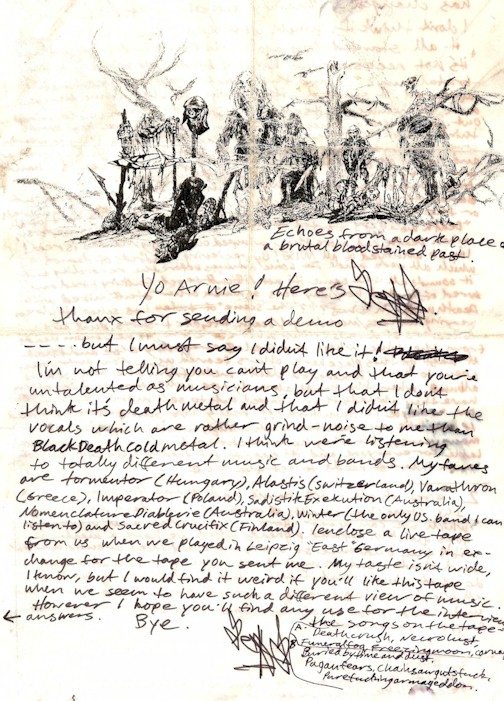 Echoes from a dark place &
a brutal bloodstained past.
Yo Arnie! Here's
thanx for sending a demo
-----but I must say I didn't like it!
I'm not telling you can't play and that you're
untalented as musicians, but that I don't
think it's death metal and that I didn't like the
vocals which are rather grind-noise to me than
Black Death cold metal. I think we're listening
to totally different music and bands. My faves
are Tormentor (Hungary), Alastis (Switzerland), Varathron
(Greece), Imperator (Poland), Sadistik Exekution (Australia),
Nomenclature Diablerie (Australia), Winter (the only US. band I can
listen to) and Sacred Crucifix (Finland). I enclose a live tape
from us when we played in Leipzig "East" Germany in ex-
change for the tape you sent me. My taste isn't wide,
I know, but I would find it weird if you'll like this tape
when we seem to have such a different view of music.
However I hope you'll find any use for the interview
← answers. Bye.
the songs on the tape
A. Deathcrush, Necrolust,
Funeralfog, Freezingmoon, carnage
B Buried by time and dust,
Pagan fears, Chainsaw gutsfuck,
Pure fucking armageddon.